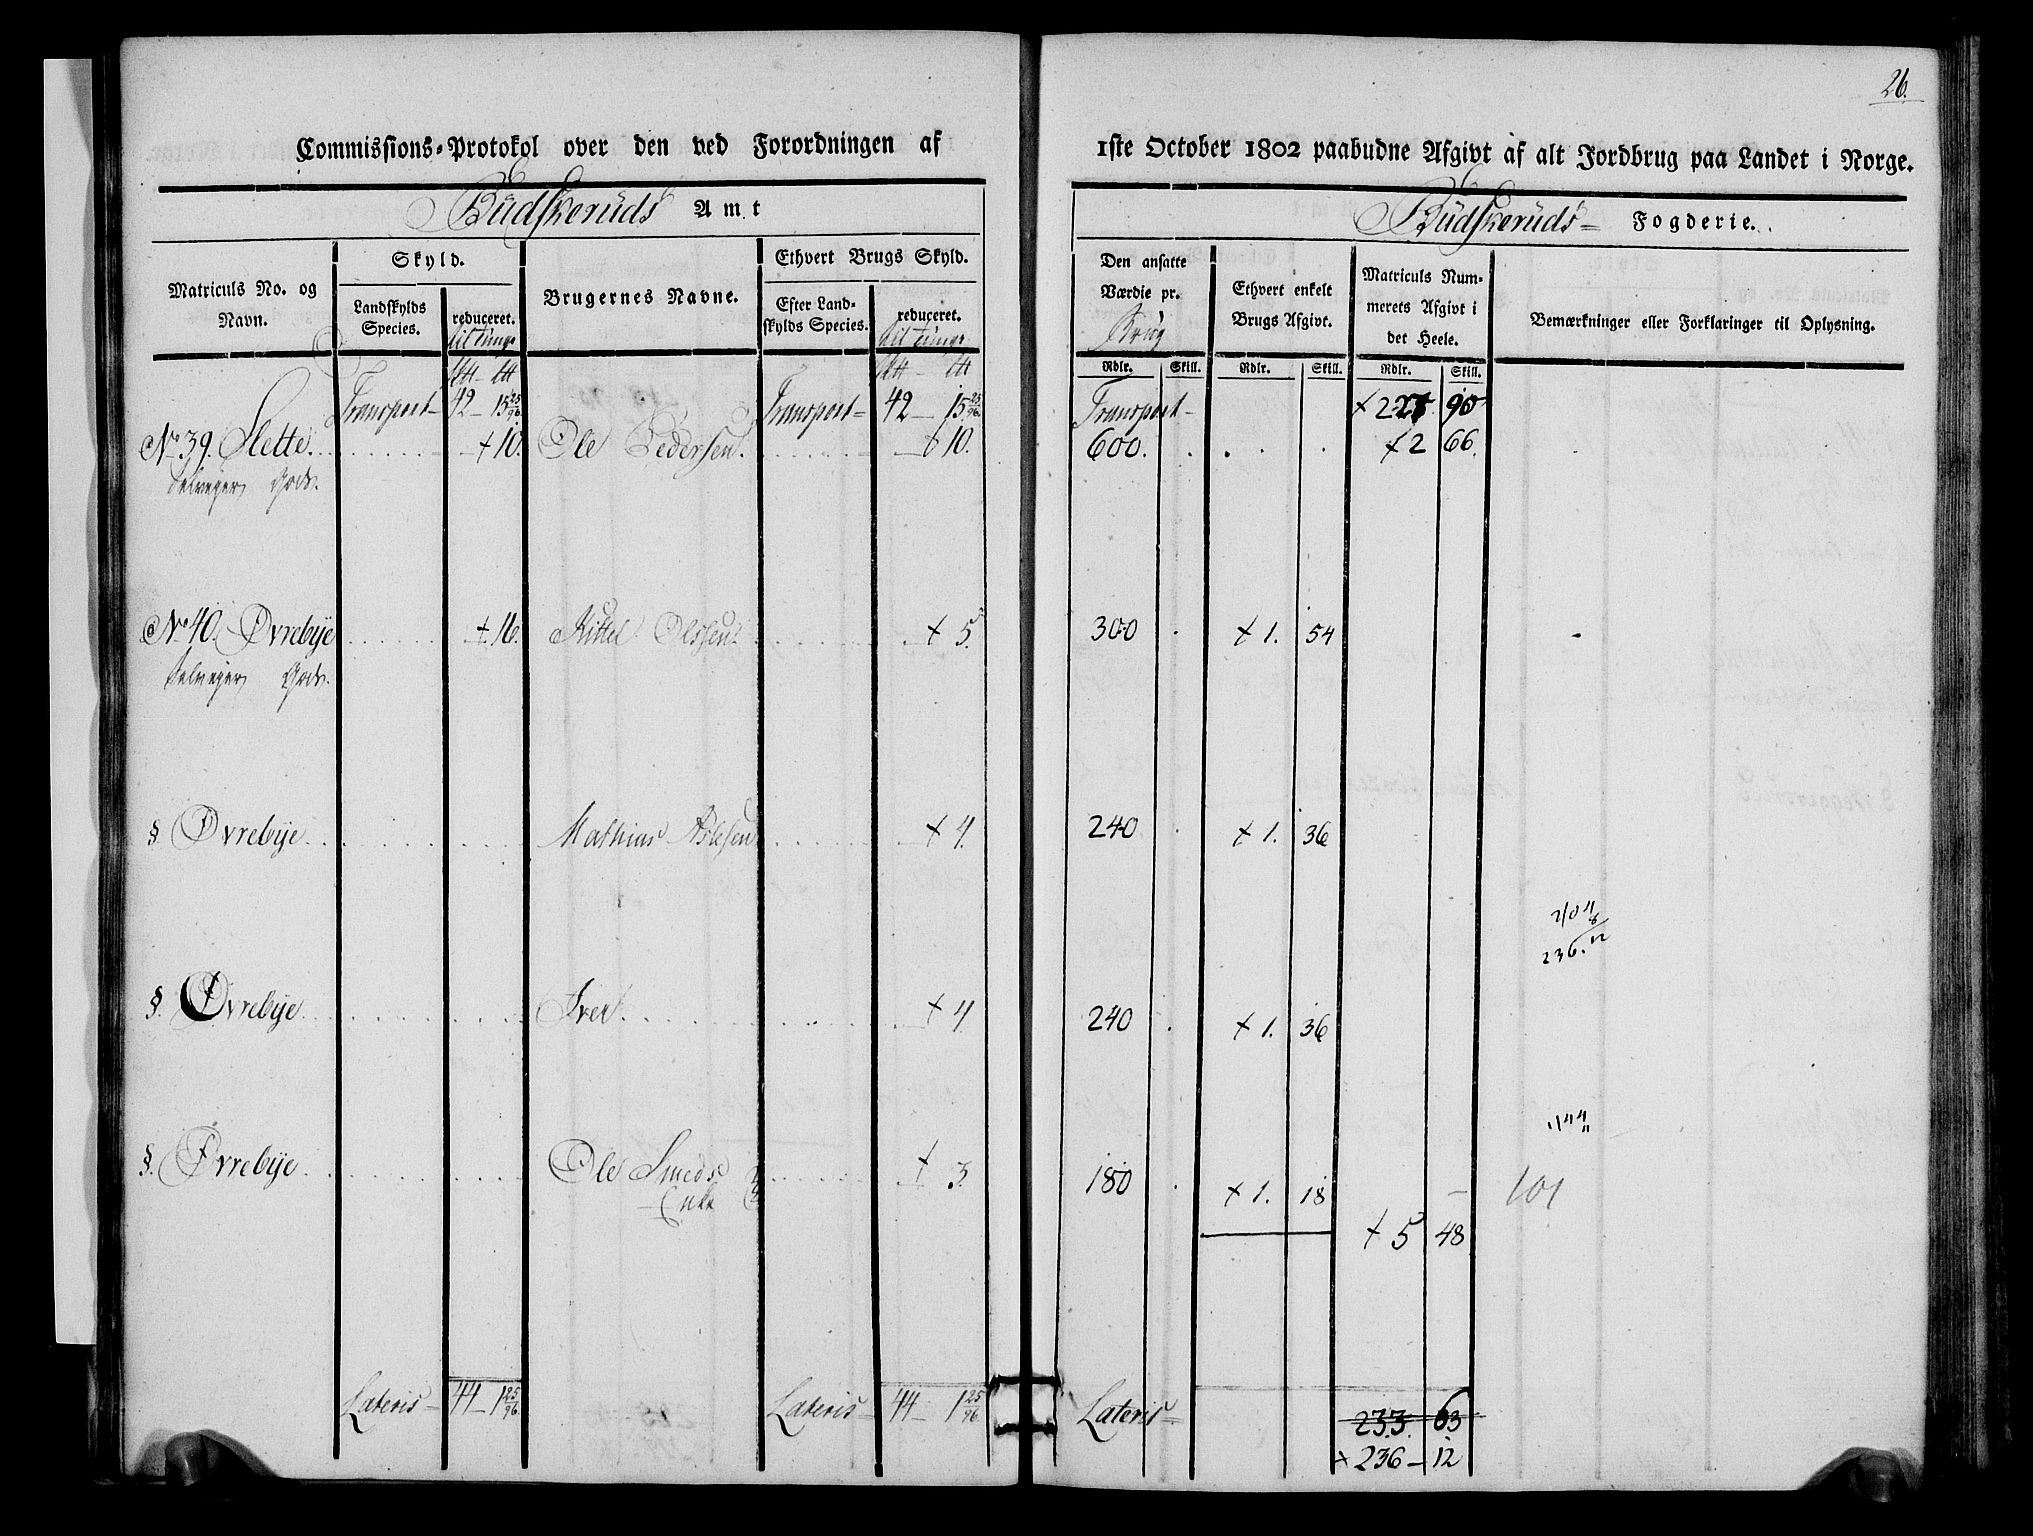 26.
Commissions-Protokol over den ved Forordningen af
1ste October 1802 paabudne Afgivt af alt Jordbrug paa Landet i Norge.
Budskeruds Amt
Budskeruds Fogderie.
Matriculs No. og Navn.
Skyld.
Landskylds Species.
reduceret. til tunge
Brugernes Navne.
Ethvert Brugs Skyld.
Efter Landskylds Species.
reduceret. til tunge
Den ansatte Værdie pr. Brug
Ethvert enkelt Brugs Afgivt.
Matriculs Nummerets Afgivt i det Heele.
Bemærkninger eller Forklaringer til Oplysning.
Rdlr. Skill. Rdlr. Skill. Rdlr. Skill.
Transport 42 – 15 25/96. Transport 42 – 15 25/96. Transport 90
No 39. Slette. 10. Ole Pedersen. 10. 600. 2 66.
Selveyer Gods.
No 40. Øvrebye 16. Kittel Olssen. 5. 300 1. 54
Selveyer Gods.
§ Øvrebye. Mathias Aslesen 4. 240 1. 36
236. 12
§. Øvrebye. Iver. 4 240 1. 36
144
§. Øvrebye. Ole Smeds Enke 3. 180 1. 18
101
5 48
Lateris 44 – 1 25/96. Lateris 44 – 1 25/96. Lateris 233. 63
236 – 12